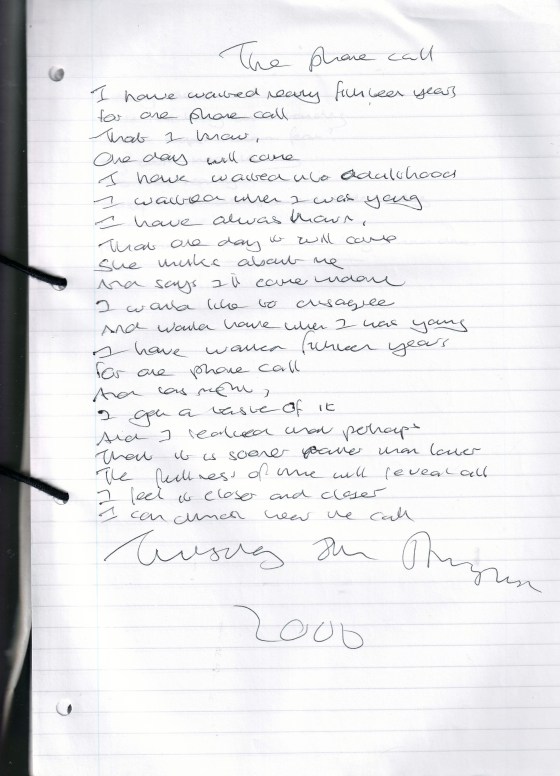 The phone call
I have waited nearly fifteen years
for one phone call
That I know,
One day will come
I have waited into adulthood
I waited when I was young
I have always known,
That one day it will come
She thinks about me
And says I'll come
I would like to disagree
And would have when I was young
I have waited fifteen years
for one phone call
And last night,
I got a taste of it
And I realised that perhaps
That it is sooner rather than later
The fullness of time will reveal all
I feel it closer and closer
I can almost hear the call
Tuesday 8th August
2000